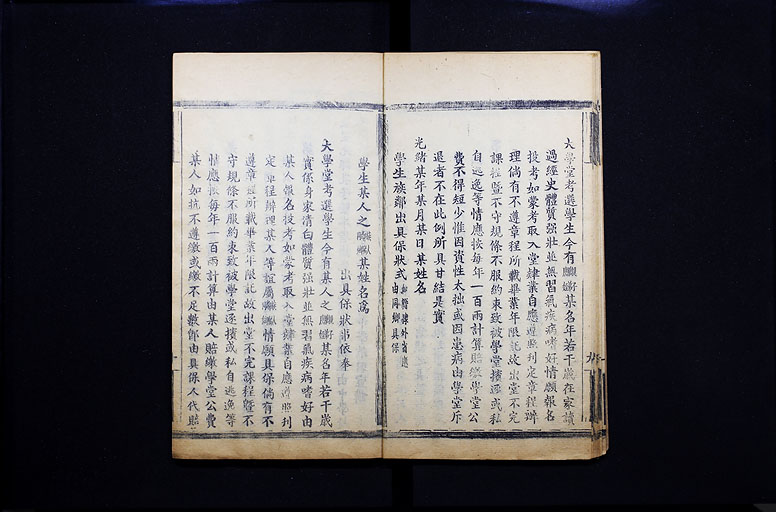 大學堂考選學生今有 某名年若干歲在家讀
過經史體質强壯並無習氣疾病嗜好情願報名
投考如蒙考取入堂肄業自應遵照刊定章程辦
理倘有不遵章程所載畢業年限託故出堂不完
課程暨不守規條不服約束致被學堂擯逐或私
自逃逸等情應按每年一百兩計算賠繳學堂公
費不得短少惟因資性太拙或因患病由學堂斥
退者不在此例所具甘結是實
光緒某年某月某日某姓名
學生族鄰出具保狀式 如係 外省應由同鄉具保
學生某人之 某姓名爲
出具保狀事依奉
大學堂考選學生今有某人之 某名年若干歲
實係身家清白體質强壯並無習氣疾病嗜好由
某人報名投考如蒙考取入堂肄業自應遵照刊
定章程辦理某人等誼屬 情願具保倘有不
遵章程所載畢業年限託故出堂不完課程暨不
守規條不服約束致被學堂逐擯或私自逃逸等
情應按每年一百兩計算由某人賠繳學堂公費
某人如抗不遵繳或繳不足數卽由具保人代賠